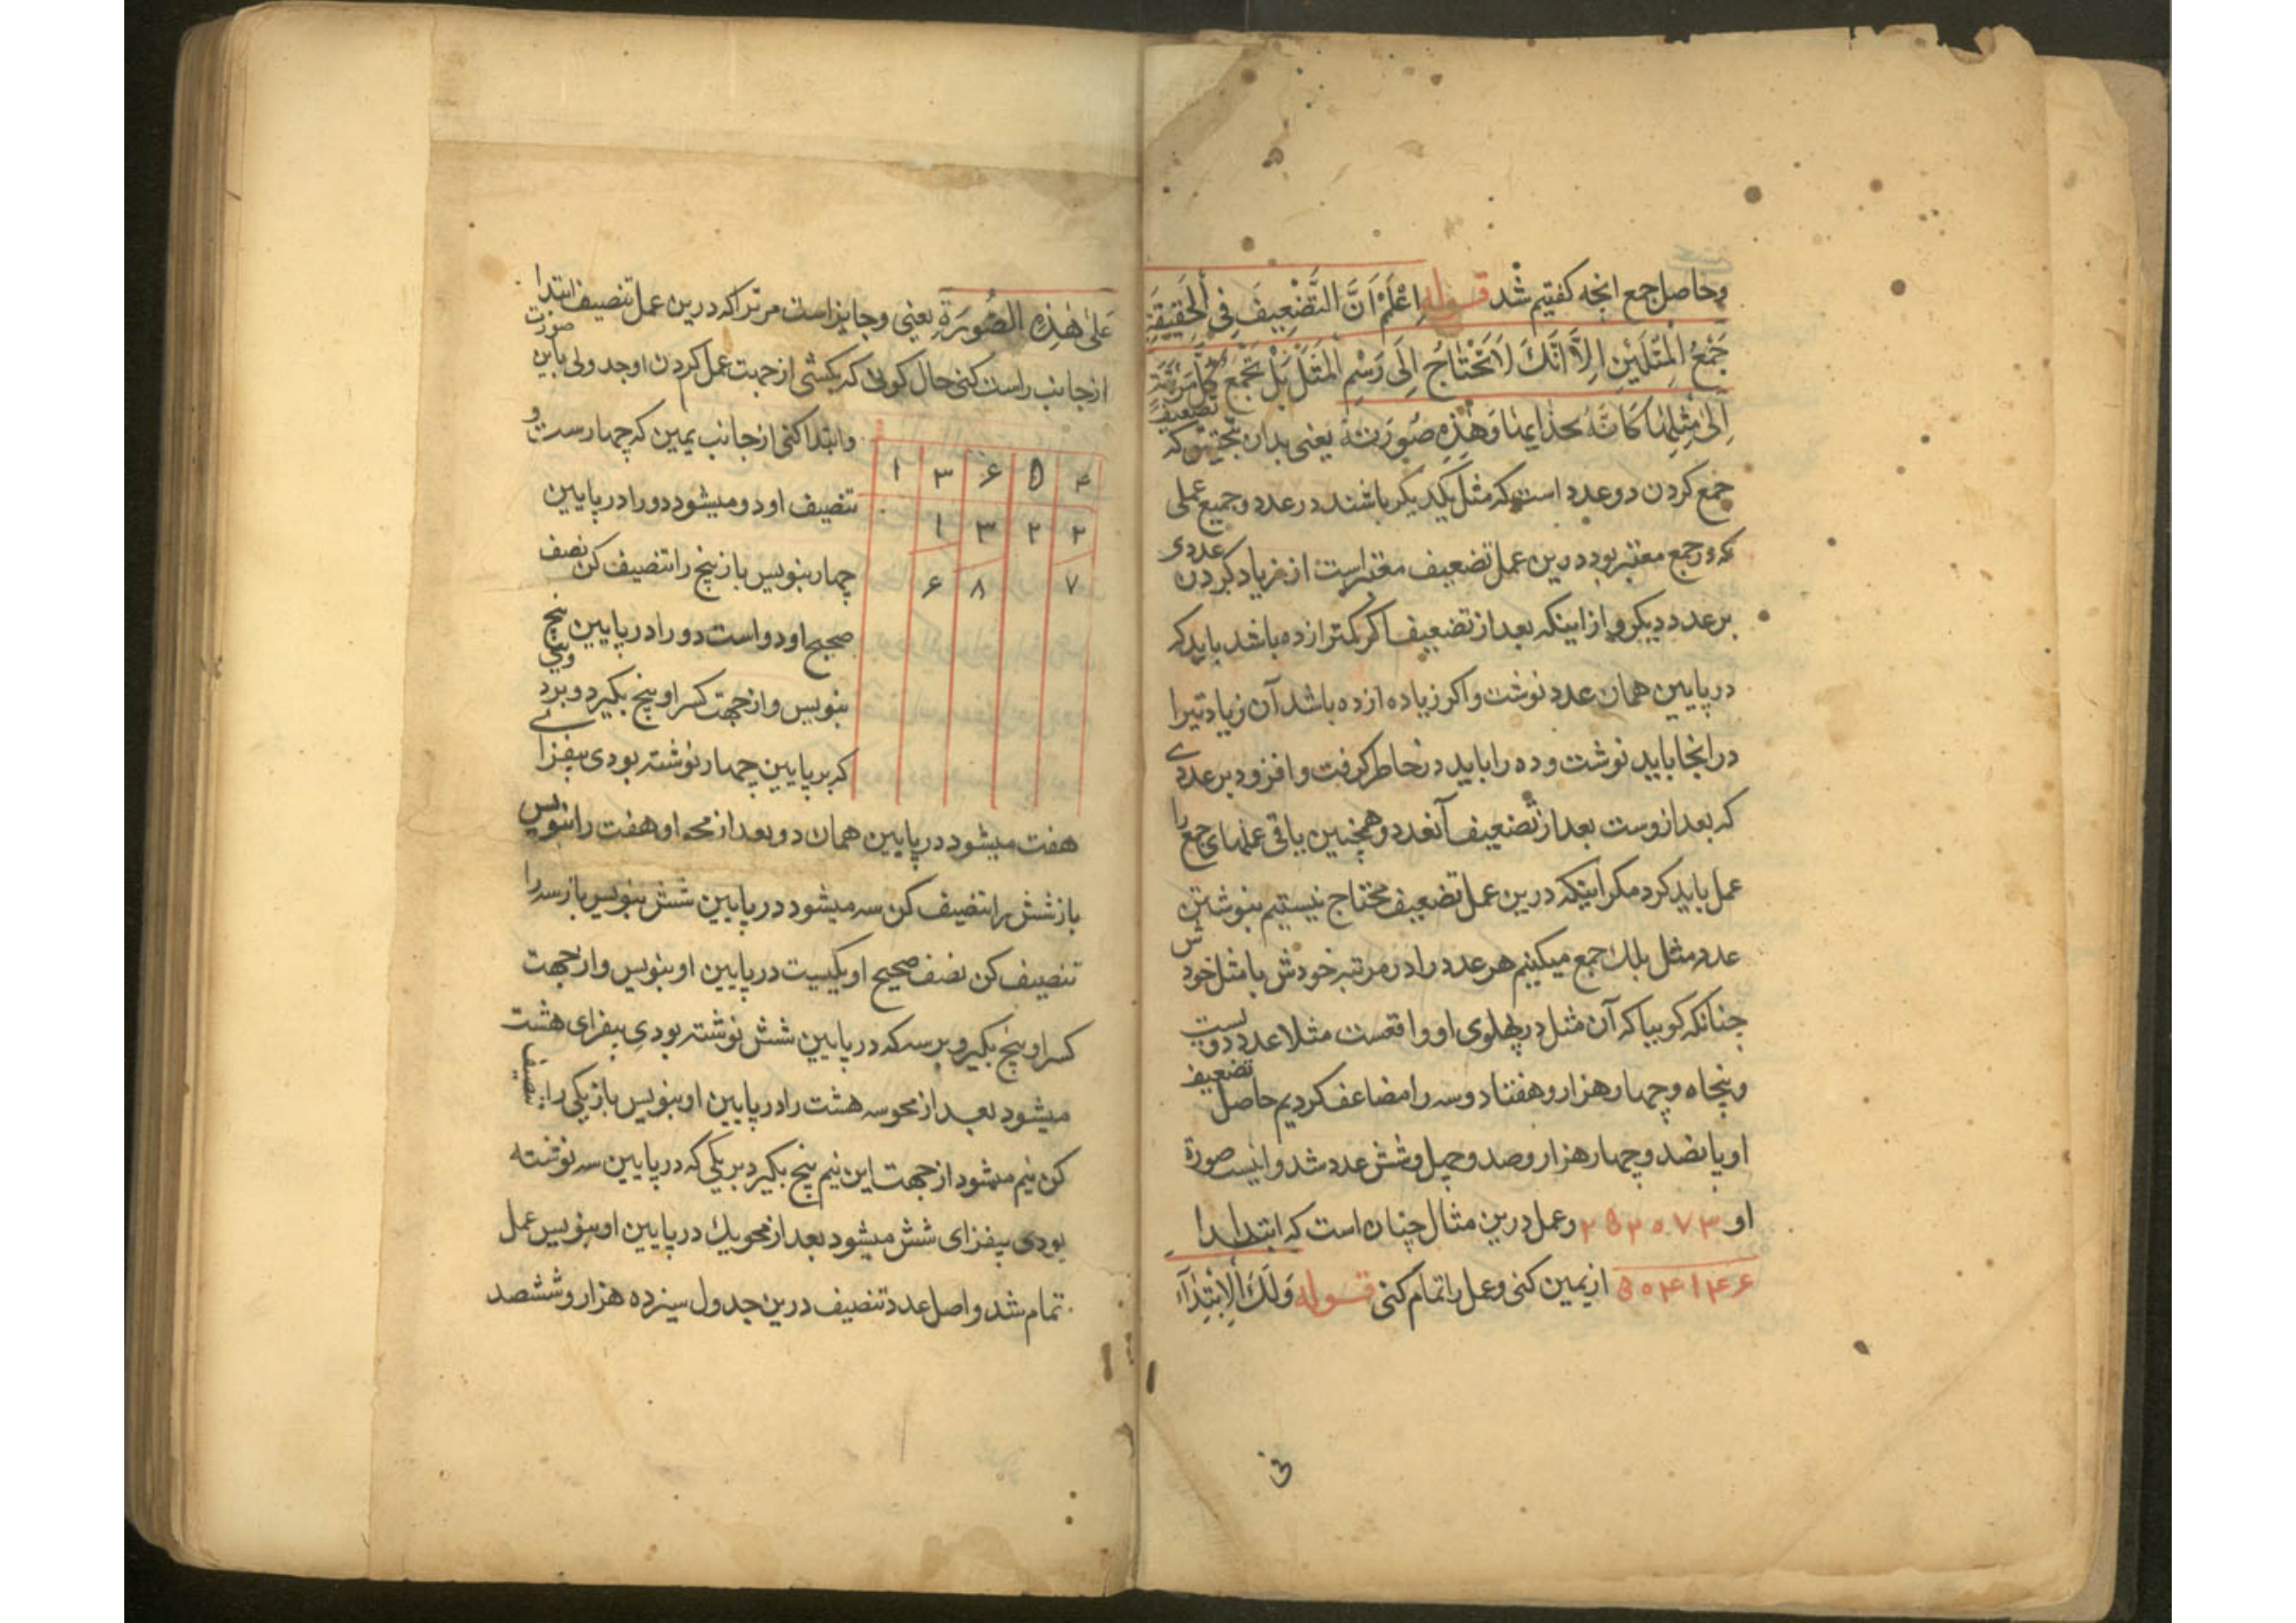 وحاصل جمع انچه کفتیم شد قوله اِعْلَمْ اَنَّ التَّضْعِیفَ فِی الْحَقِیقَةِ
جَمْعُ الْمِثْلَیْنِ اِلاَّ اَنَّکَ لَاتَحْتَاجُ اِلَی رَسْمِ الْمَثَلِ بَلْ تَجْمَعُ کُلَّ مَرْتَبَةٍ
اِلَی مِثْلِهَا کَاَنَّهُ بحذایها وَهٰذِهِ صُورَتُهُ یعنی بدان بتحقیق که تضعیف
جمع کردن دو عدد است که مثل یکدیکر باشند در عدد و جمیع عملی
که در جمع معتبر بود درین عمل تضعیف معتبر است از زیاد کردن عددی
بر عدد دیکر و از اینکه بعد از تضعیف اکر کمتر از ده باشد باید که
در پایین همان عدد نوشت و اکر زیاده از ده باشد آن زیادتیرا
در انجا باید نوشت و ده را باید در خاطر کرفت و افزود بر عددی
که بعد ازوست بعد از تضعیف آنعدد و همچنین باقی عملهای جمع را
عمل باید کرد مکر اینکه درین عمل تضعیف محتاج نیستیم بنوشتن
عدد مثل بلک جمع میکنیم هر عدد را در مرتبه خودش با مثل خودش
چنانکه کوییا که آن مثل در پهلوی او واقعست مثلا عدد دویست
و پنجاه و چهار هزار و هفتاد و سه را مضاعف کردیم حاصل تضعیف
او پانصد و چهار هزار و صد و چهل و شش عدد شد و اینست صورة
او ۲۵۲۰۷۳ و عمل درین مثال چنان است که ابتدا
۵۰۴۱۴۶ از یمین کنی و عمل را تمام کنی قوله وَلَکَ الْاِبْتِدَآءُ
عَلیٰ هٰذِهِ الصُّورَةِ یعنی و جایز است مر ترا که درین عمل تنصیف ابتدا
از جانب راست کنی حال کونی که بکشی از جهت عمل کردن او جدولی باین صورت
و ابتدا کنی از جانب یمین که چهارست و
۱ ۳ ۶ ۵ ۴
تنصیف او دو میشود دو را در پایین
۱ ۳ ۲ ۲
چهار بنویس باز پنج را تنصیف کن نصف
۶ ۸ ۷
صحیح او دو است دو را در پایین پنج
بنویس و از جهت کسر او پنج بکیر و بر دویی
که بر پایین چهار نوشته بودی بیفزای
هفت میشود در پایین همان دو بعد از محو او هفت را بنویس
باز شش را تنصیف کن سه میشود در پایین شش بنویس باز سه را
تنصیف کن نصف صحیح او یکیست در پایین او بنویس و از جهت
کسر او پنج بکیر و بر سه که در پایین شش نوشته بودی بیفزای هشت
میشود بعد از محو سه هشت را در پایین او بنویس باز یکی را تنصیف
کن نیم میشود از جهت این نیم پنج بکیر و بر یکی که در پایین سه نوشته
بودی بیفزای شش میشود بعد از محو یک در پایین او بنویس عمل
تمام شد و اصل عدد تنصیف درین جدول سیزده هزار و ششصد